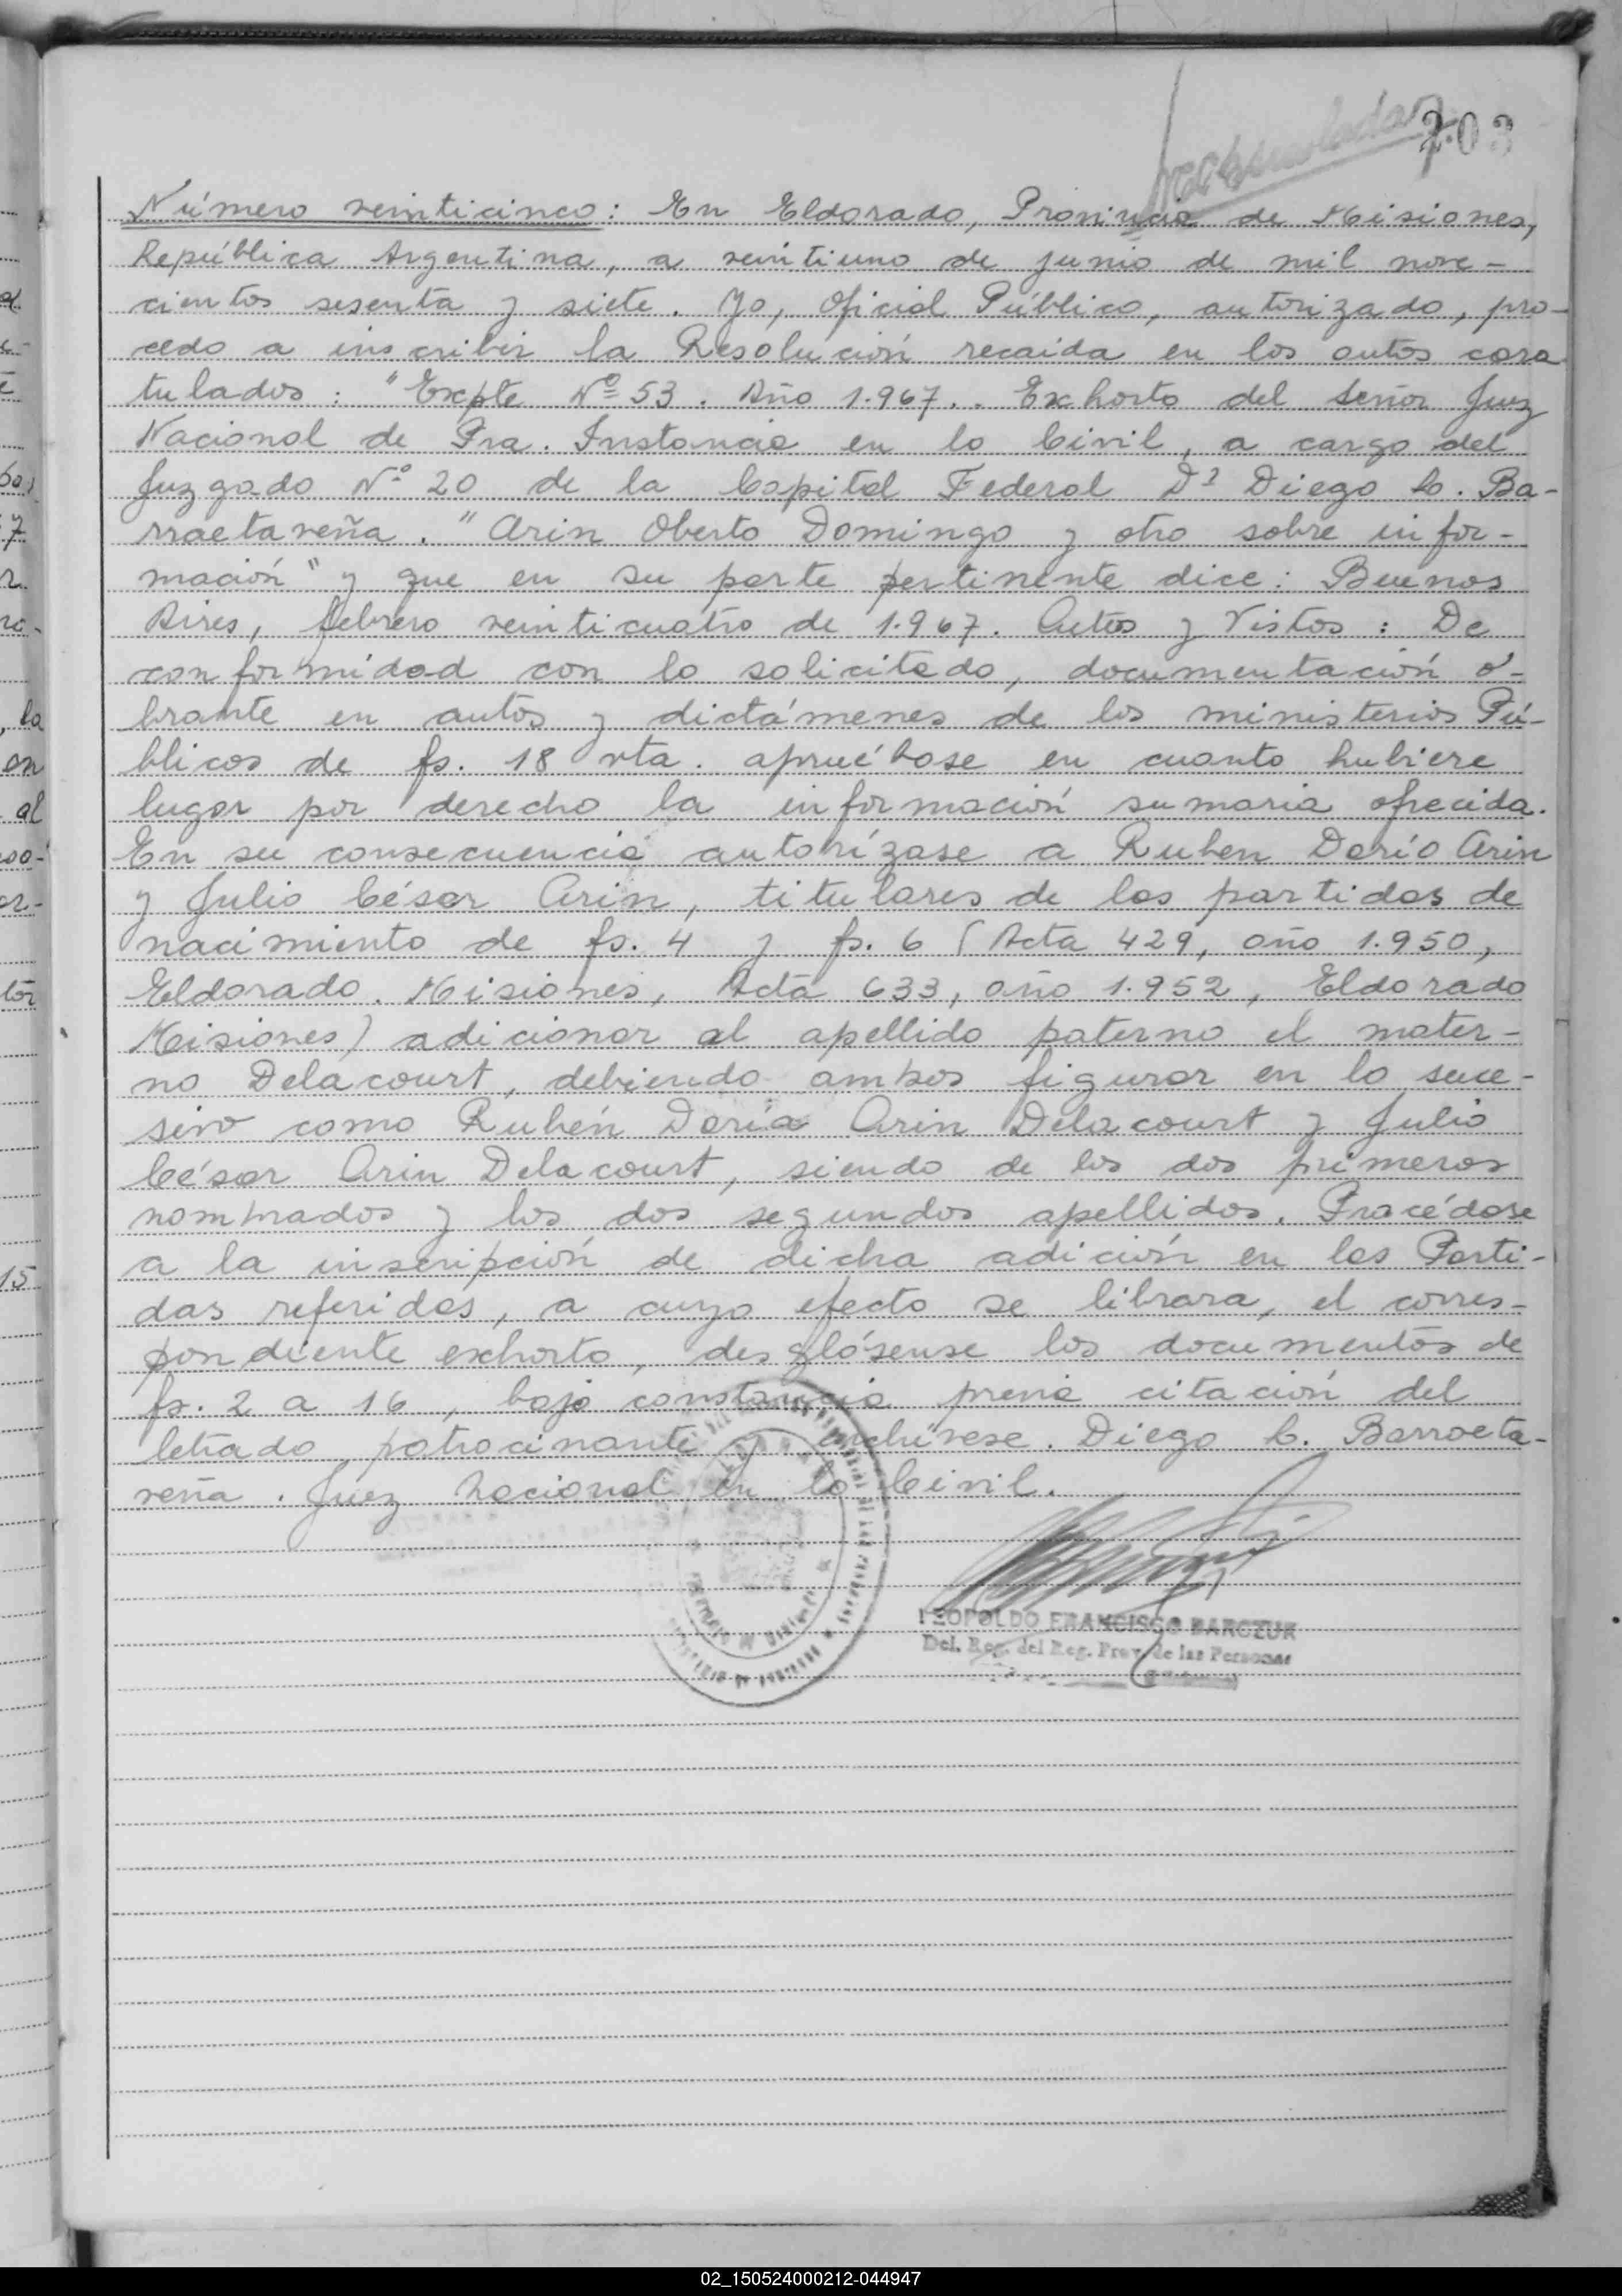 203
Número veinticinco: En Eldorado, Provincia de Misiones,
República Argentina, a veintiuno de junio de mil nove-
cientos sesenta y siete. Yo, Oficial Público, autorizado, pro-
cedo a inscribir la Resolución recaída en los autos cara
tulados: "Expte Nº 53. Año 1.967.. Exhorto del Señor Juez
Nacional de Pra. Instancia en lo Civil, a cargo del
Juzgado Nº 20 de la Capital Federal Dr Diego C. Ba-
rraetaveña. "Arin Oberto Domingo y otro sobre infor-
mación" y que en su parte pertinente dice: Buenos
Aires, febrero veinticuatro de 1.967. Autos y Vistos: De
conformidad con lo solicitado, documentación o-
brante en autos y dictámenes de los ministerios Pú-
blicos de fs. 18 vta. apruébase en cuanto hubiere
lugar por derecho la información sumaria ofrecida.
En su consecuencia autorízase a Ruben Darío Arin
y Julio César Arin, titulares de las partidas de
nacimiento de fs. 4 y fs. 6 (Acta 429, año 1.950,
Eldorado. Misiones, Acta 633, año 1.952, Eldorado
Misiones) adicionar al apellido paterno el mater-
no Delacourt, debiendo ambos figurar en lo suce-
sivo como Rubén Daría Arin Delacourt y Julio
César Arin Delacourt, siendo de los dos primeros
nombrados y los dos segundos apellidos. Procédase
a la inscripción de dicha adición en las Parti-
das referidas, a cuyo efecto se librara, el corres-
pondiente exhorto, desglósense los documentos de
fs. 2 a 16, bajo constancia previa citación del
letrado patrocinante y archívese. Diego C. Barraeta-
veña. Juez Nacional en lo Civil.
LEOPOLDO FRANCISCO BARCZUK
Del. Reg. del Reg. Prov. de las Personas
02_150524000212-044947